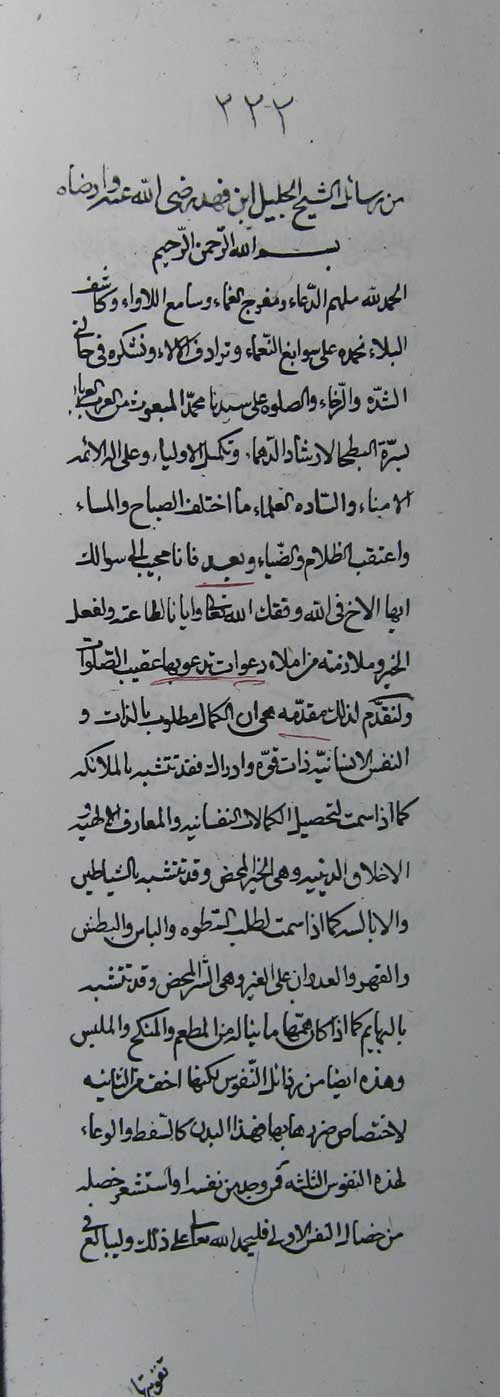 ٢٢٢
من رسائل الشيخ الجليل ابن فهد رضى الله عنه وارضاه
بسم الله الرحمن الرحيم
الحمد لله ملهم الدعاء ومفرج الغماء وسامع اللاواء وكاشف
البلاء نحمده على سوابغ النعماء وترادف الالاء ونشكره فى حالتي
الشده والرخاء والصلوه على سيدنا محمد المبعوث من العرب العرباء
بسرة البطحا لارشاد الدهماء وتكميل الاولياء وعلى اله الائمه
الامناء والساده العلماء ما اختلف الصباح والمساء
واعتقب الظلام والضياء وبعد فانا مجيب الى سوالك
ايها الاخ فى الله وفقك الله تعالى وايانا لطاعته ولفعل
الخير وملازمته من املاء دعوات تدعو بها عقيب الصلوات
ولنقدم لذلك مقدمه هى ان الكمال مطلوب بالذات و
النفس الانسانيه ذات قوه وادراك فقد تتشبه بالملائكه
كما اذا سمت لتحصيل الكمالات النفسانيه والمعارف الالهيه و
الاخلاق الدينيه وهى الخير المحض وقد تتشبه بالشياطين
والابالسه كما اذا سمت لطلب السطوه والباس والبطش
والقهر والعدوان على الغير وهى الشر المحض وقد تتشبه
بالبهايم كما اذا كان همتها ما يناله من المطعم والمنكح والملبس
وهذه ايضا من رذائل النفوس لكنها اخف من الثانيه
لاختصاص ضررها بها فهذا البدن كالسفط والوعاء
لهذه النفوس الثلثه فمن وجد من نفسه او استشعر خصله
من خصال النفس الاولى فليحمد الله تعالى على ذلك وليبالغ فى